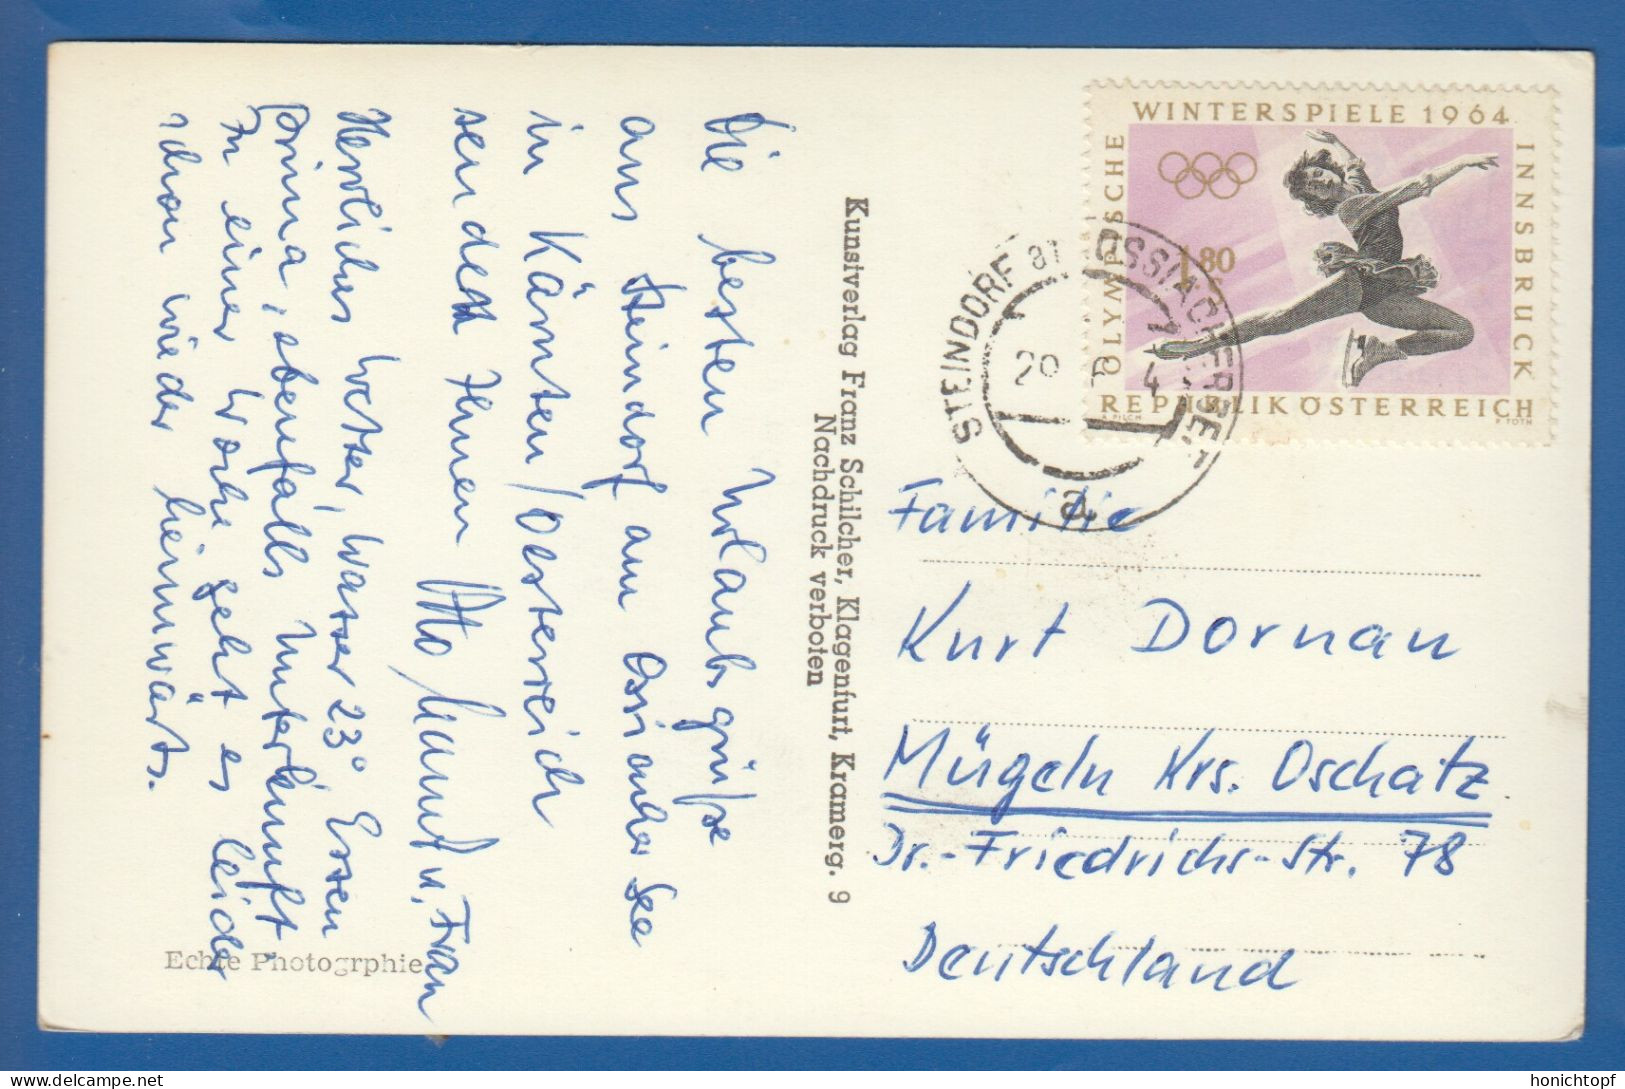 Die besten Urlaubsgrüße
aus Steindorf am Ossiacher See
in Kärnten/Oesterreich
sendet Ihnen Otto u. Frau
Herrliches Wetter, Wasser 23° Essen
prima, ebenfalls Unterkunft
In einer Woche geht es leider
schon wieder heimwärts.
Echte Photogrphie
Kunstverlag Franz Schilcher, Klagenfurt, Kramerg. 9
Nachdruck verboten
WINTERSPIELE 1964
OLYMPISCHE
INNSBRUCK
1.80
REPUBLIK ÖSTERREICH
A. PILCH
R. TOTH
STEINDORF am OSSIACHERSEE
a
Familie
Kurt Dornau
Mügeln Krs. Oschatz
Dr.-Friedrichs-Str. 78
Deutschland
honichtopf